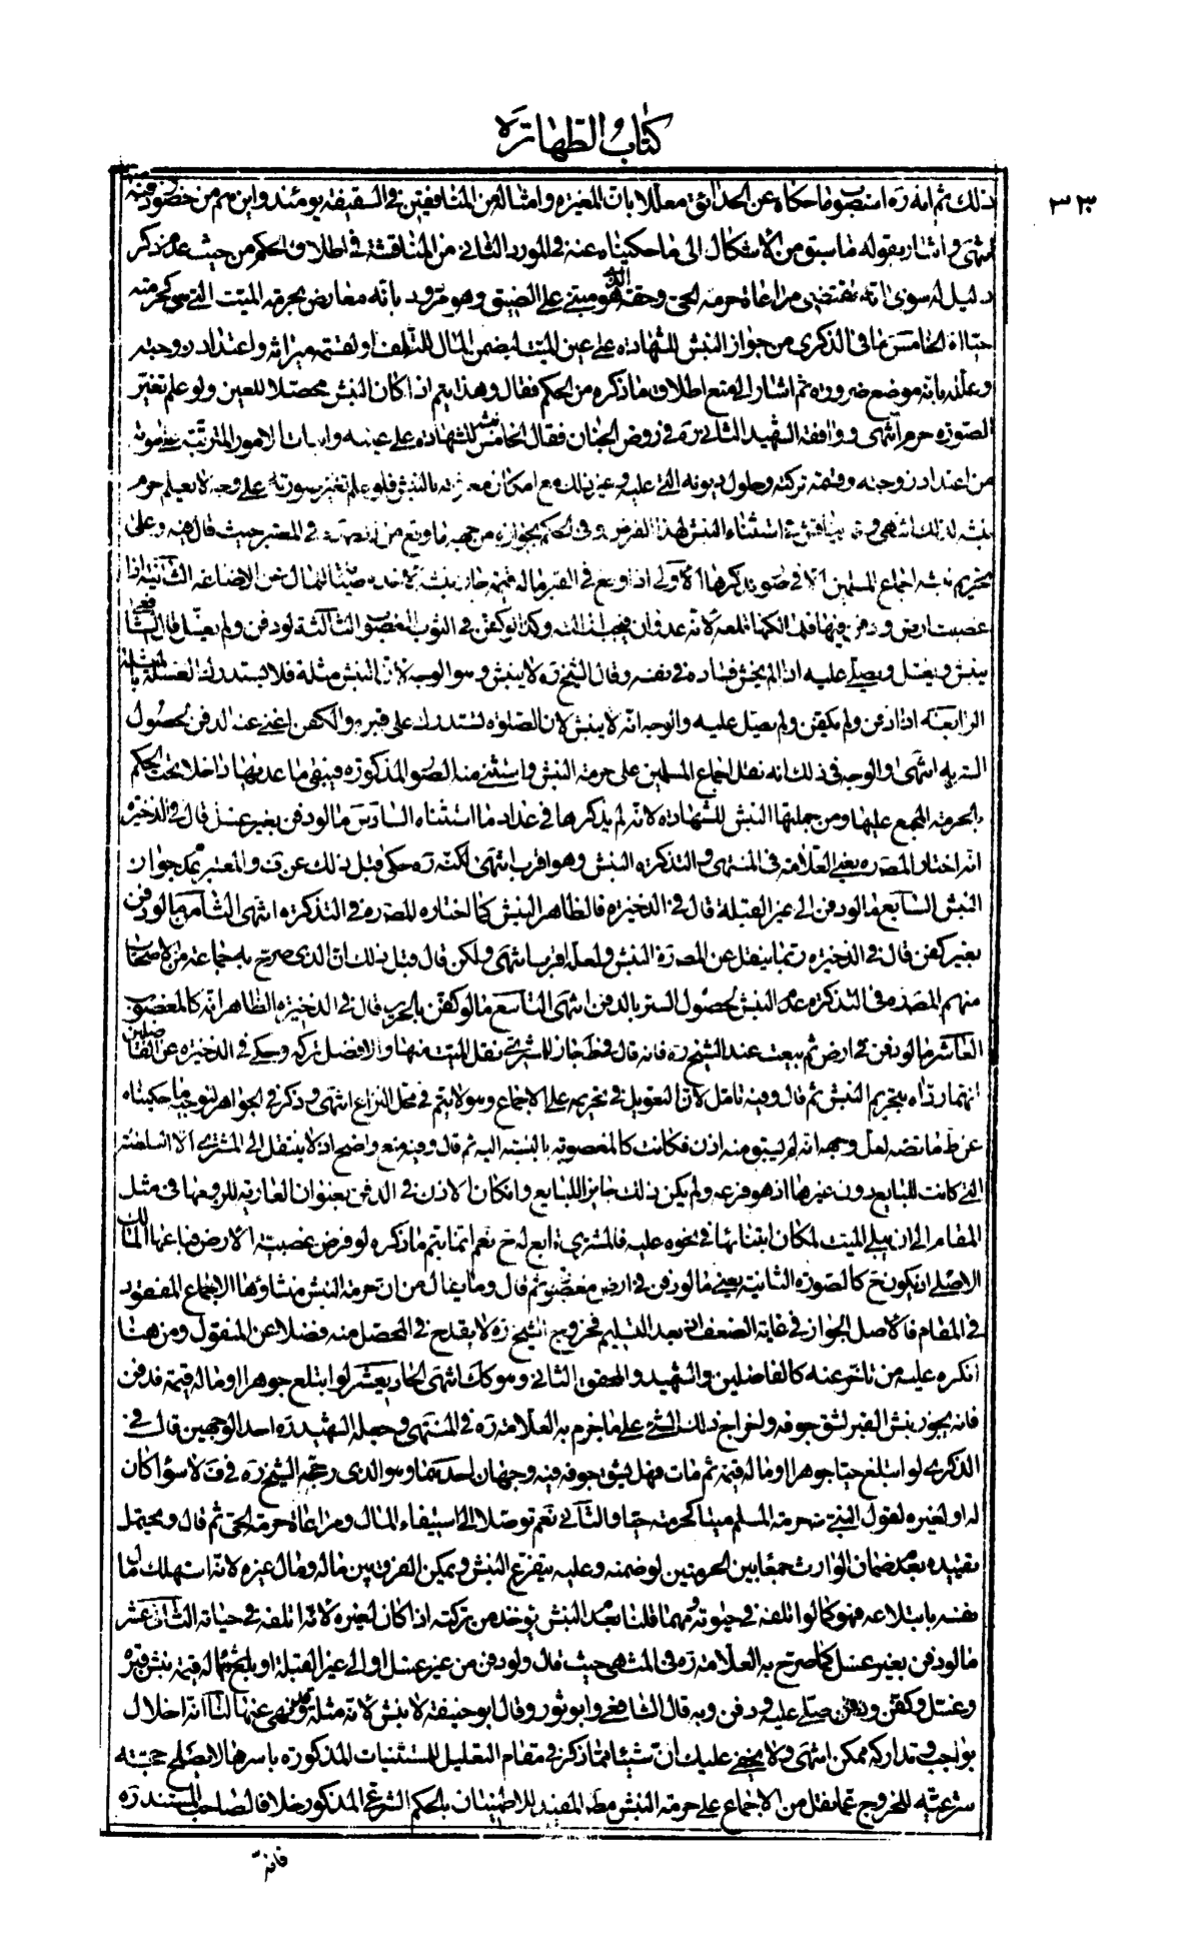 كتاب الطهارة
٣٣
ذلك ثم انه ره استصوب ما حكاه عن الحدائق معللا بان المغيرة وامثاله من المنافقين في السقيفة يومئذ واين هم من حضور دفنه
انتهى واشار بقوله ما سبق من الاشكال الى ما حكيناه عنه في المورد الثاني من المناقشة في اطلاق الحكم من حيث عدم ذكر
دليل له سوى انه مقتضى مراعاة حرمة الحي وحقه الذي هو مبني على الضيق وهو مردود بانه معارض بحرمة الميت التي هي كحرمته
حيا الخامس ما في الذكرى من جواز النبش للشهادة على عين الميت ليضمن المال المتلف او لقسمة ميراثه واعتداد زوجته
وعلله بانه موضع ضرورة ثم اشار الى منع اطلاق ما ذكره من الحكم فقال وهذا يتم اذا كان النبش محصلا للعين ولو علم تغير
الصورة حرم انتهى ووافقه الشهيد الثاني ره في روض الجنان فقال الخامس نبشه للشهادة على عينه واثبات الامور المترتبة على موته
من اعتداد زوجته وقسمة تركته وحلول ديونه التي عليه وغير ذلك مع امكان معرفته بالنبش فلو علم تغير صورته على وجه لا يعلم حرم
نبشه لذلك انتهى وقد يناقش في استثناء النبش لهذا الفرض وفي الحكم بجوازه من جهة ما وقع من المصنف ره في المعتبر حيث قال فيه وعلى
تحريم نبشه اجماع المسلمين الا في صور نذكرها الاولى اذا وقع في القبر ماله قيمة جاز نبشه لاخذه صيانة للمال عن الاضاعة الثانية اذا
غصبت ارض ودفن فيها فلمالكها قلعه لانه عدوان فيجب ازالته وكذا لو كفن في الثوب المغصوب الثالثة لو دفن ولم يغسل قال الشافعي
ينبش ويغسل ويصلى عليه اذا لم يخش فساده في نفسه وقال الشيخ ره لا ينبش وهو الوجه لان النبش مثلة فلا يستدرك الغسل بالمثلة
الرابعة اذا دفن ولم يكفن ولم يصل عليه والوجه انه لا ينبش لان الصلوة تستدرك على قبره والكفن اغنى عنه الدفن لحصول
الستر به انتهى والوجه في ذلك انه نقل اجماع المسلمين على حرمة النبش واستثنى منه الصور المذكورة فيبقى ما عداها داخلا تحت الحكم
بالحرمة المجمع عليها ومن جملتها النبش للشهادة لانه لم يذكرها في عداد ما استثناه السادس ما لو دفن بغير غسل قال في الذخيرة
انه اختار المصره يعني العلامة في المنتهى والتذكرة النبش وهو اقرب انتهى لكنه ره حكى قبل ذلك عن ف والمعتبر عدم جواز
النبش السابع ما لو دفن الى غير القبلة قال في الذخيرة فالظاهر النبش كما اختاره المصره في التذكرة انتهى الثامن ما لو دفن
بغير كفن قال في الذخيرة ربما ينقل عن المصره النبش ولعله اقرب انتهى ولكن قال قبل ذلك ان الذي صرح به جماعة من الاصحاب
منهم المصره في التذكرة عدم النبش لحصول الستر بالدفن انتهى التاسع ما لو كفن بالحرير قال في الذخيرة الظاهر انه كالمغصوب
العاشر ما لو دفن في ارض ثم بيعت عند الشيخ ره فانه قال في ط جاز للمشتري نقل الميت منها والافضل تركه وحكى في الذخيرة عن الفاضلين
انهما رداه بتحريم النبش ثم قال وفيه تامل لان التعويل في تحريمه على الاجماع وهو لا يتم في محل النزاع انتهى وذكر في الجواهر في توجيه ما حكيناه
عن ط ما نصه لعل وجهه انه لم يسبق منه اذن فكانت كالمغصوبة بالنسبة اليه ثم قال وفيه منع واضح اذ لا ينتقل الى المشتري الا السلطنة
التي كانت للبايع دون غيرها اذ هو فرعه ولم يكن ذلك جايزا للبايع وان كان الاذن في الدفن بعنوان العارية للزومها في مثل
المقام الى ان يبلى الميت لمكان ابتنائها في نحوه عليه فالمشتري تابع له ح نعم انما يتم ما ذكره لو فرض غصبية الارض فباعها المالك
الاصلي اذ يكون ح كالصورة الثانية يعني ما لو دفن في ارض مغصوبة ثم قال وما يقال من ان حرمة النبش منشاؤها الاجماع المفقود
في المقام فالاصل الجواز في غاية الضعف اذ بعد التسليم فخروج الشيخ ره لا يقدح في المحصل منه فضلا عن المنقول ومن هنا
انكره عليه من تاخر عنه كالفاضلين والشهيد والمحقق الثاني وهو كك انتهى الحاديعشر لو ابتلع جوهرا او ماله قيمة فدفن
فانه يجوز نبش القبر لشق جوفه واخراج ذلك الشيء على ما جزم به العلامة ره في المنتهى وجعله الشهيد ره احد الوجهين قال في
الذكرى لو ابتلع حيا جوهرا او ماله قيمة ثم مات فهل يشق جوفه فيه وجهان احدهما وهو الذي رجحه الشيخ ره في ف لا سواء كان
له او لغيره لقول النبي ص حرمة المسلم ميتا كحرمته حيا والثاني نعم توصلا الى استيفاء المال ومراعاة حرمة الحي ثم قال ويحتمل
تقييده بعدم ضمان الوارث جمعا بين الحرمتين لو ضمنه وعليه يتفرع النبش ويمكن الفرق بين ماله ومال غيره لانه استهلك مال
نفسه بابتلاعه فهو كما لو اتلفه في حيوته ومهما قلنا بعدم النبش يؤخذ من تركته اذا كان لغيره لانه اتلفه في حياته الثاني عشر
ما لو دفن بغير غسل كما صرح به العلامة ره في المنتهى حيث قال ولو دفن من غير غسل او الى غير القبلة او بلع ماله قيمة نبش قبره
وغسل وكفن ودفن صلى عليه ودفن وبه قال الشافعي وابو ثور وقال ابو حنيفة لا ينبش لانه مثلة وقد نهى عنها لنا انه اخلال
بواجب وتداركه ممكن انتهى ولا يخفى عليك ان شيئا مما ذكر في مقام التعليل للمستثنيات المذكورة باسرها لا يصلح حجة
شرعية للخروج عما نقل من الاجماع على حرمة النبش مط المفيد للاطمينان بالحكم الشرعي المذكور خلافا لصاحب المستند ره
فانه